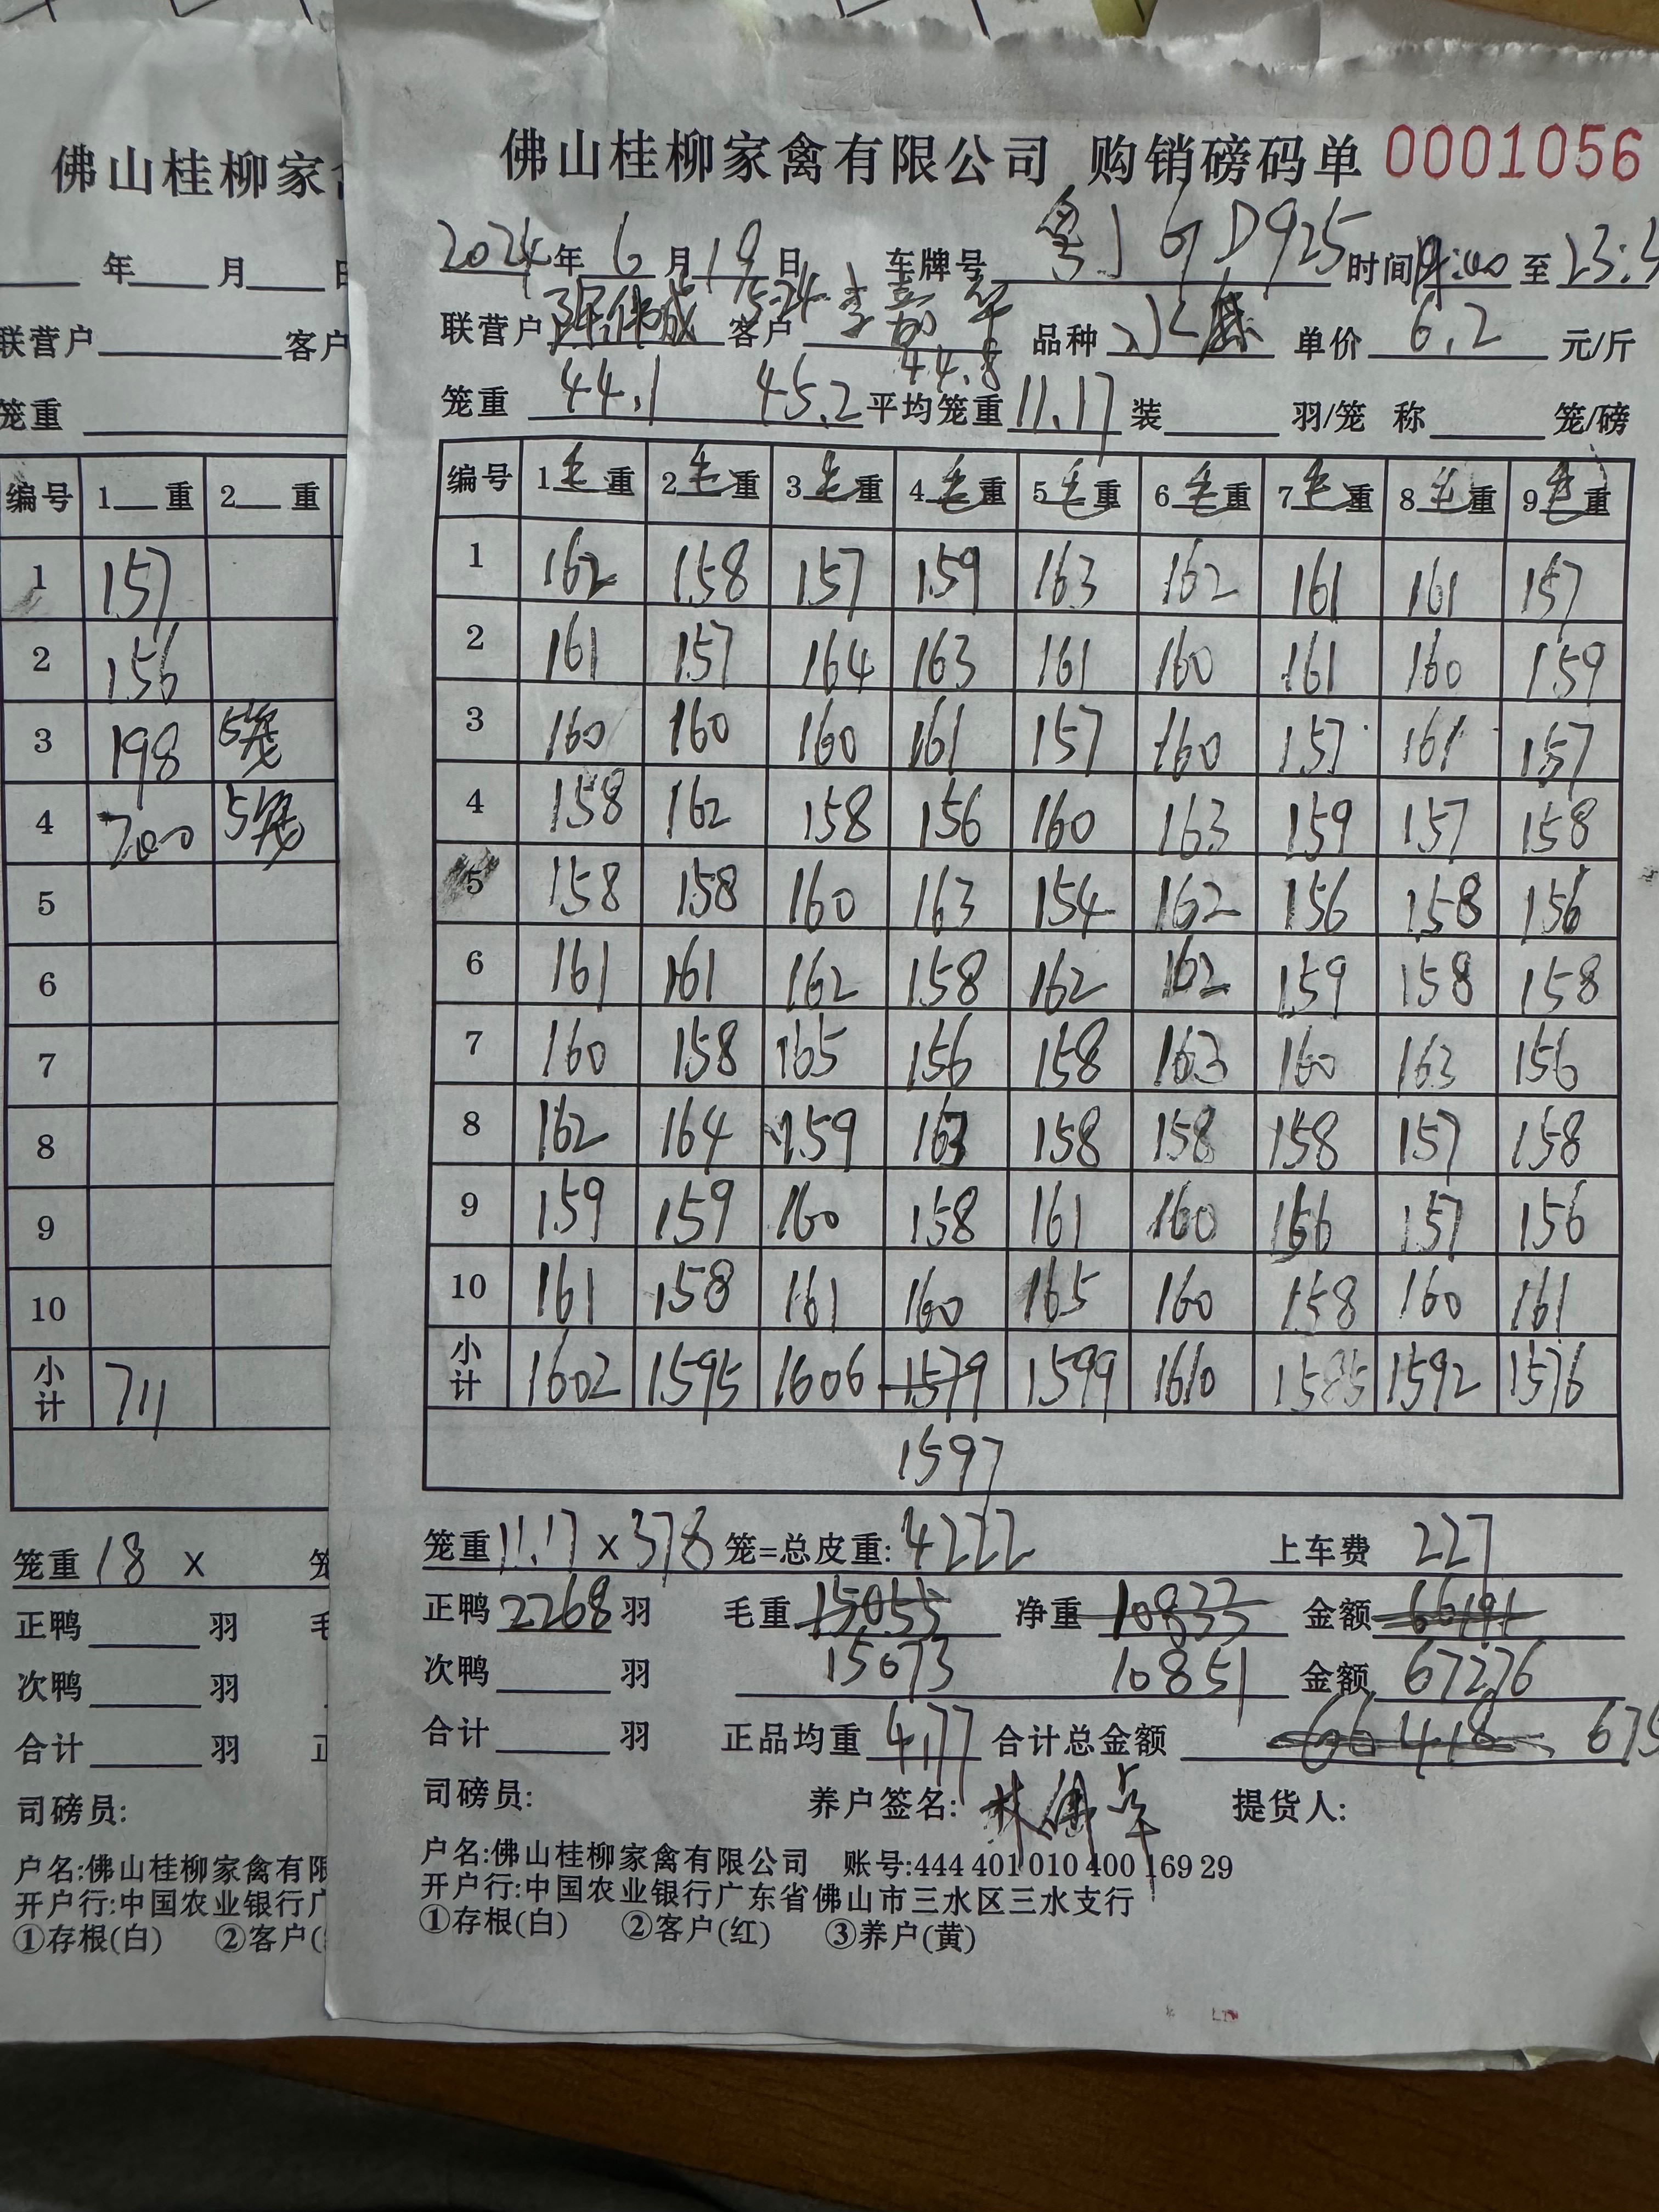 佛山桂柳家禽有限公司 购销磅码单 0001056
2024年 6 月 19 日 车牌号 粤J6D925 时间 至 23:3
联营户 客户 李嘉华 品种 单价 6.2 元/斤
44.8
笼重 44.1 45.2 平均笼重 11.17 装 羽/笼 称 笼/磅
编号 1毛重 2毛重 3毛重 4毛重 5毛重 6毛重 7毛重 8毛重 9毛重
1 162 158 157 159 163 162 161 161 157
2 161 157 164 163 161 160 161 160 159
3 160 160 160 161 157 160 157 161 157
4 158 162 158 156 160 163 159 157 158
5 158 158 160 163 154 162 156 158 156
6 161 161 162 158 162 162 159 158 158
7 160 158 165 156 158 163 160 163 156
8 162 164 159 163 158 158 158 157 158
9 159 159 160 158 161 160 156 157 156
10 161 158 161 160 165 160 158 160 161
小计 1602 1595 1606 1579 1599 1610 1585 1592 1576
1597
笼重 11.17 x 378 笼=总皮重: 4222 上车费 227
正鸭 2268 羽 毛重 15055 净重 10833 金额
次鸭 羽 15073 10851 金额 67276
合计 羽 正品均重 4.77 合计总金额 66418 675
司磅员: 养户签名: 提货人:
户名:佛山桂柳家禽有限公司 账号:444 401 010 400 169 29
开户行:中国农业银行广东省佛山市三水区三水支行
①存根(白) ②客户(红) ③养户(黄)
佛山桂柳家
年 月
联营户 客户
笼重
编号 1 重 2 重
1 157
2 156
3 198 5笼
4 200 5笼
5
6
7
8
9
10
小计 711
笼重 18 x
正鸭 羽
次鸭 羽
合计 羽
司磅员:
户名:佛山桂柳家禽有限
开户行:中国农业银行广
①存根(白) ②客户(